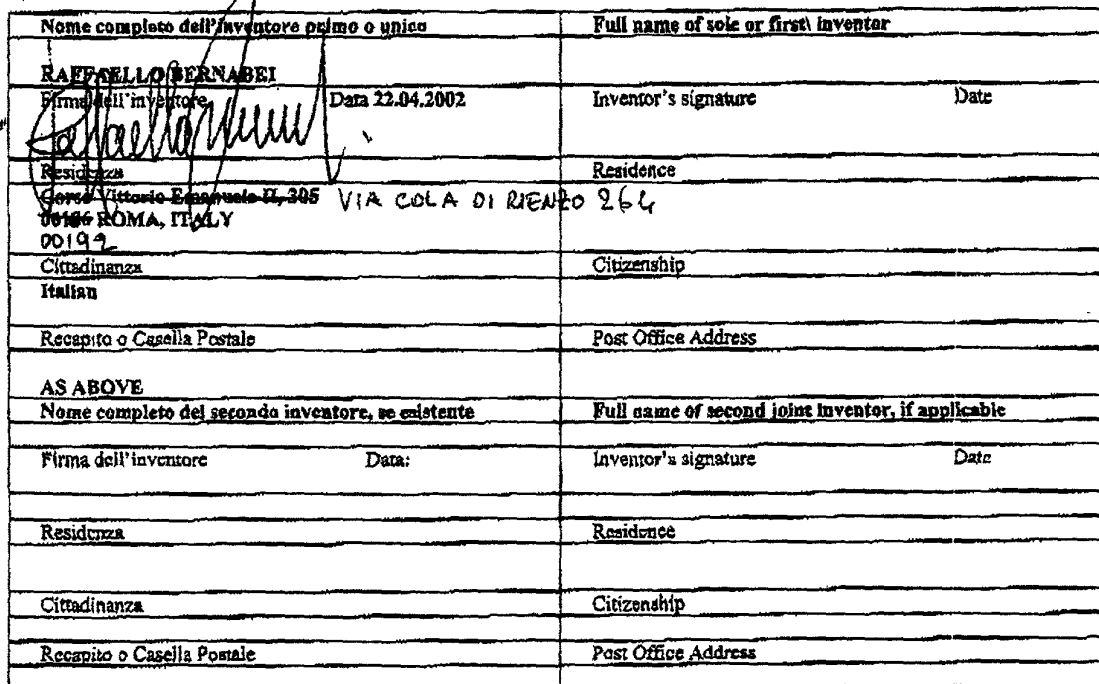 Nome completo dell'inventore primo o unico Full name of sole or first\ inventor
RAFFAELLO BERNABEI
Firma dell'inventore Data 22.04.2002 Inventor's signature Date
Residenza Residence
Corso Vittorio Emanuele II, 305 VIA COLA DI RIENZO 264
00186 ROMA, ITALY
00192
Cittadinanza Citizenship
Italian
Recapito o Casella Postale Post Office Address
AS ABOVE
Nome completo del secondo inventore, se esistente Full name of second joint inventor, if applicable
Firma dell'inventore Data: Inventor's signature Date
Residenza Residence
Cittadinanza Citizenship
Recapito o Casella Postale Post Office Address